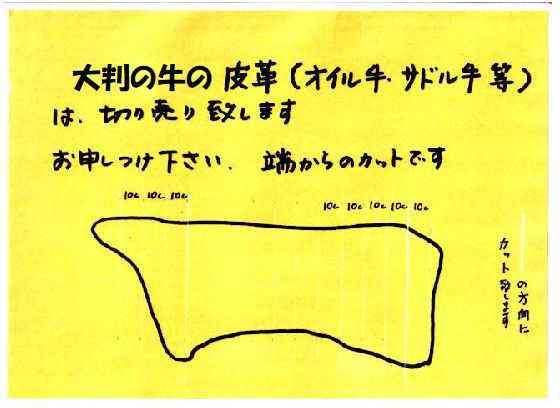 大判の牛の皮革(オイル牛.サドル牛等)
は、切り売り致します
お申しつけ下さい、端からのカットです
10c 10c 10c
10c 10c 10c 10c 10c
の方向に
カット致します